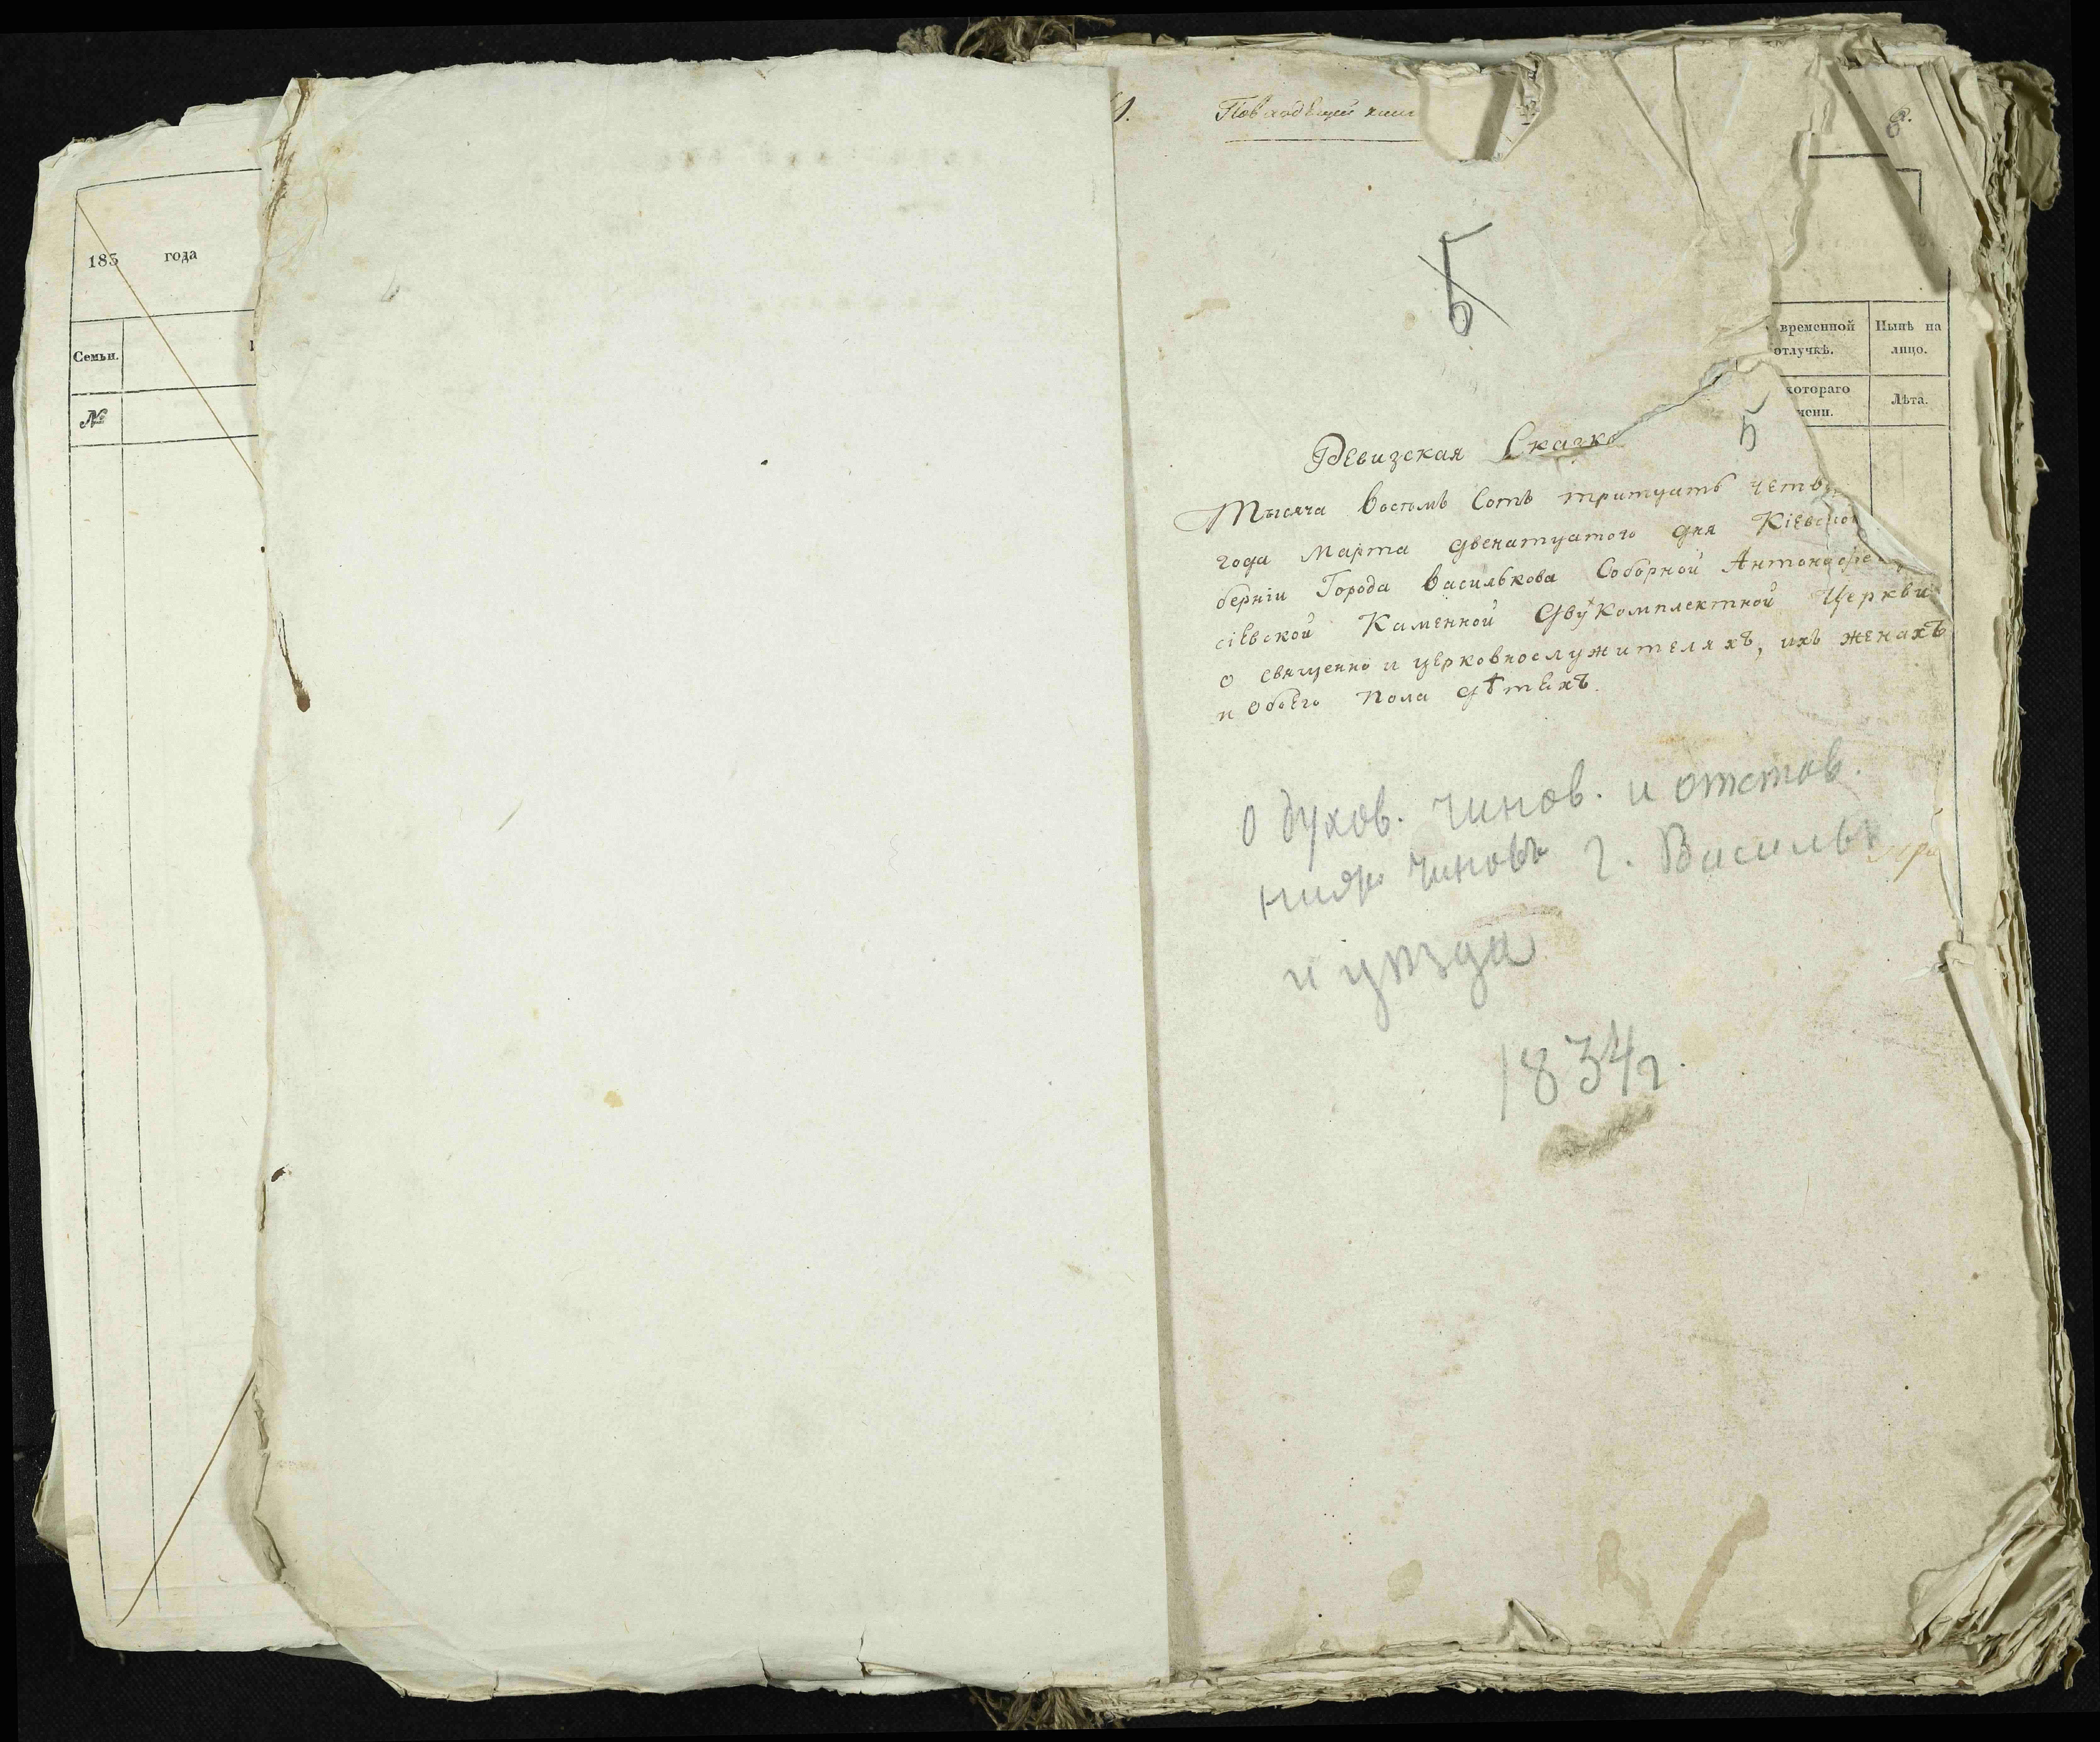 183 года
Семьи.
№
5
временной
отлучкѣ.
Нынѣ на
лицо.
котораго
Лѣта.
5
Ревизская Сказка
Тысяча восьмъ Сотъ тритцать четв
года Марта двенатцатого дня Кіевской
берніи Города Василькова Соборной Антоно
сіевской Каменной Двукомплектной Церкви
о священно и церковнослужителяхъ, ихъ женахъ
и обоего пола дѣтехъ.
о духов. чинов. и отстав.
нижн. чиновъ г. Васильк
и уѣзда
1834 г.